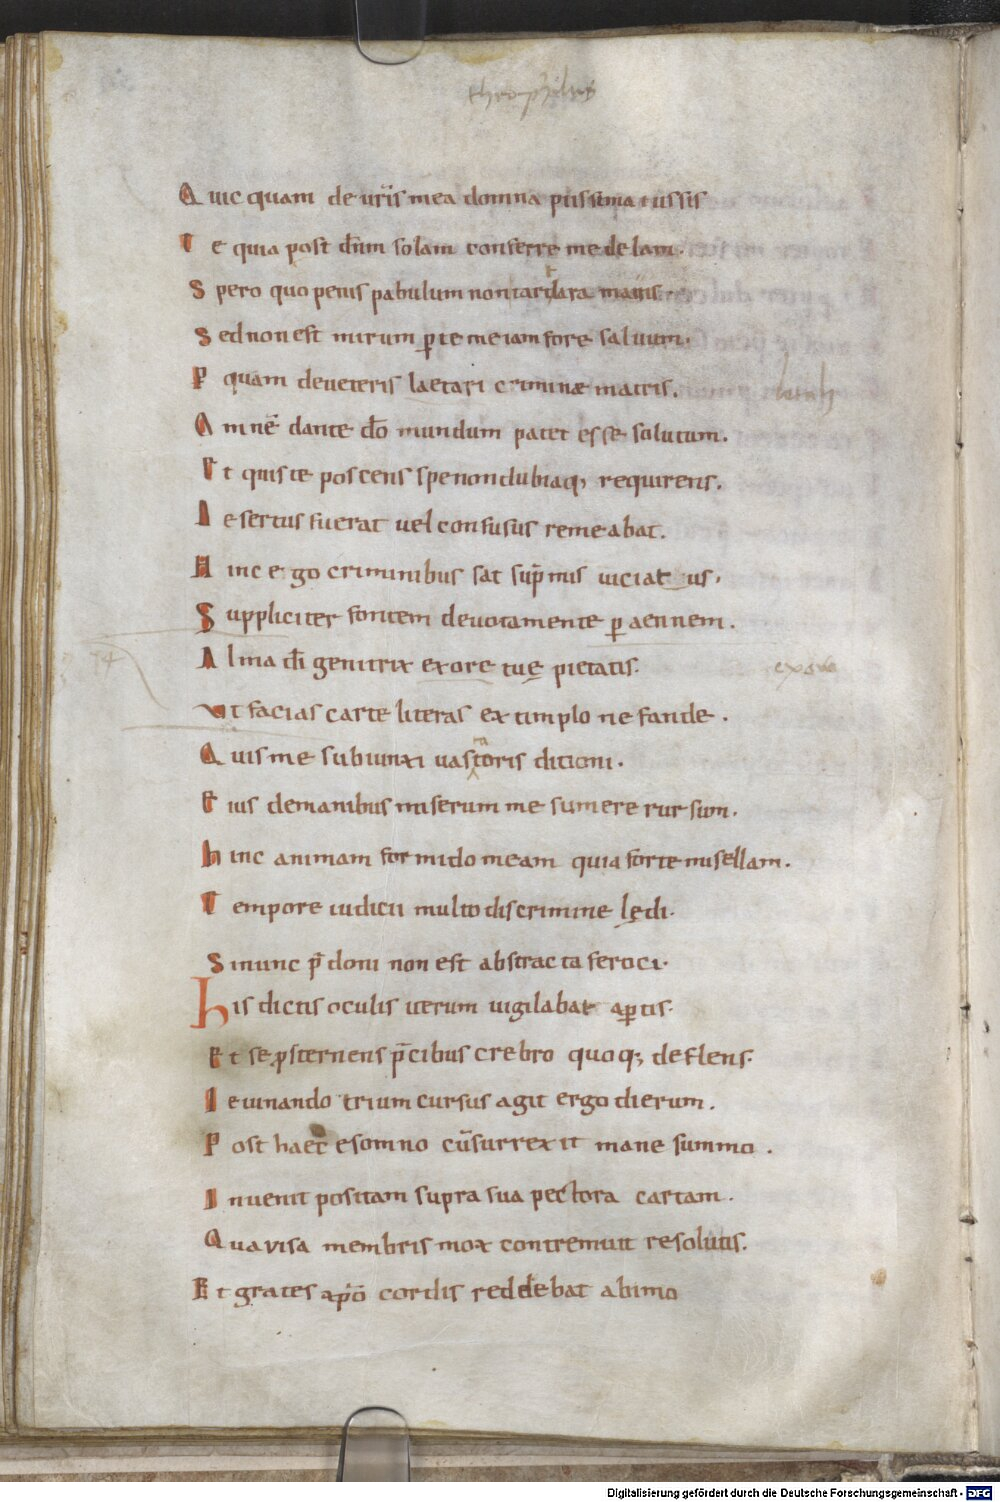 theophilus
Quic quam de ur̄is mea domna piissima iussis
Te quia post dn̄m solam conferre medelam.
Spero quo penis pabulum non tardara magis.
Sed non est mirum ꝑ te me iam fore saluum.
Per quam deueteris laetari criminæ matris.
Omnē dante dō mundum patet esse solutum.
Et quis te poscens spe non dubiaq; requirens.
Desertus fuerat uel confusus remeabat.
Hinc ergo criminibus sat sup̄mis uiciatus.
Suppliciter fontem deuotamente ꝑ aennem.
Alma dī genitrix exore tuę pietatis.
exore
Vt facias carte literas ex timplo nefande.
Quis me subiunxi uastoris dicioni.
Eius demanibus miserum me sumere rursum.
hinc animam formido meam quia forte misellam.
Tempore iudicii multo discrimine lędi.
Si nunc p̄doni non est abstracta feroci.
His dictis oculis iterum uigilabat aꝑtis.
Et se ꝓsternens p̄cibus crebro quoq; deflens.
Ieiunando trium cursus agit ergo dierum.
Post haec e somno cū surrexit mane summo.
Inuenit positam supra sua pectora cartam.
Qua visa membris mox contremuit resolutis.
Et grates xp̄o cordis reddebat ab imo
Digitalisierung gefördert durch die Deutsche Forschungsgemeinschaft - DFG